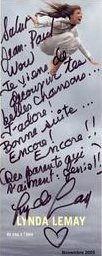 Salut
Jean-Paul
Wow
Je viens de
découvrir tes
belles chansons...
J'adore ça...
Bonne suite...
Encore...
Encore!!
(Des parents qui
t'aiment. Merci!)
Lynda Lemay
LYNDA LEMAY
Novembre 2005